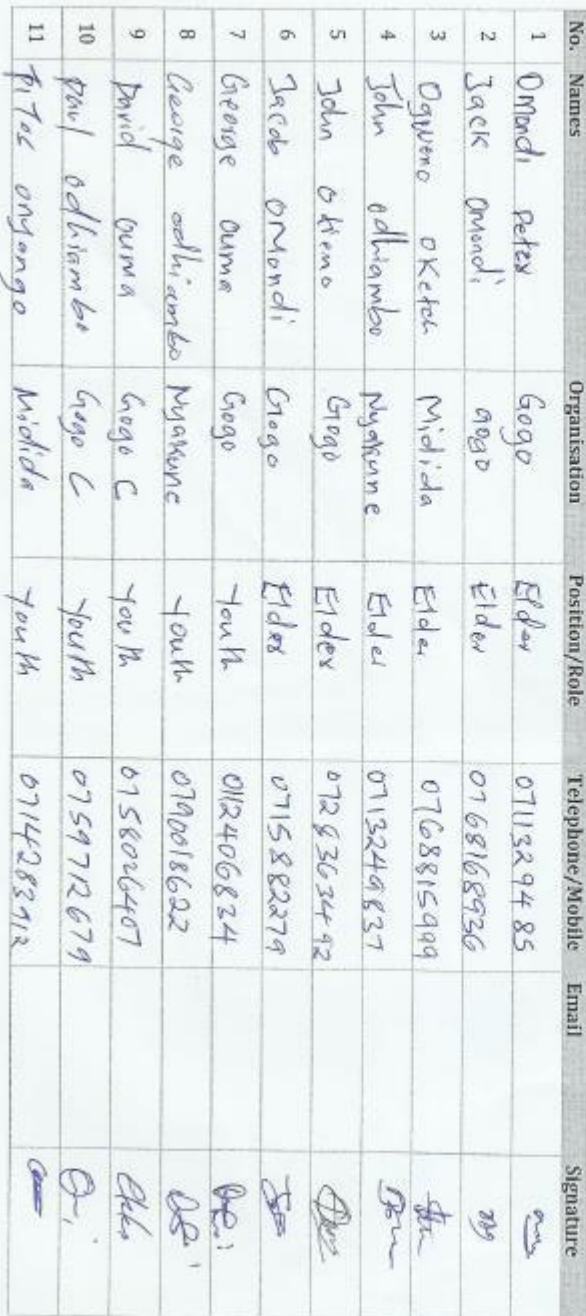 No. Names Organisation Position/Role Telephone/Mobile Email Signature
1 Omondi Peter Gogo Elder 0711329485
2 Jack Omondi gogo Elder 0768168936
3 Ogweno oketch Midida Elder 0768815999
4 John odhiambo Nyakune Elder 0713249837
5 John otieno Gogo Elder 0728363492
6 Jacob omondi Gogo Elder 0715882279
7 George ouma Gogo Youth 0112406834
8 George odhiambo Nyakune Youth 0790018622
9 David ouma Gogo C Youth 0758026407
10 Paul odhiambo Gogo C Youth 0759712679
11 onyango Midida Youth 0714283912